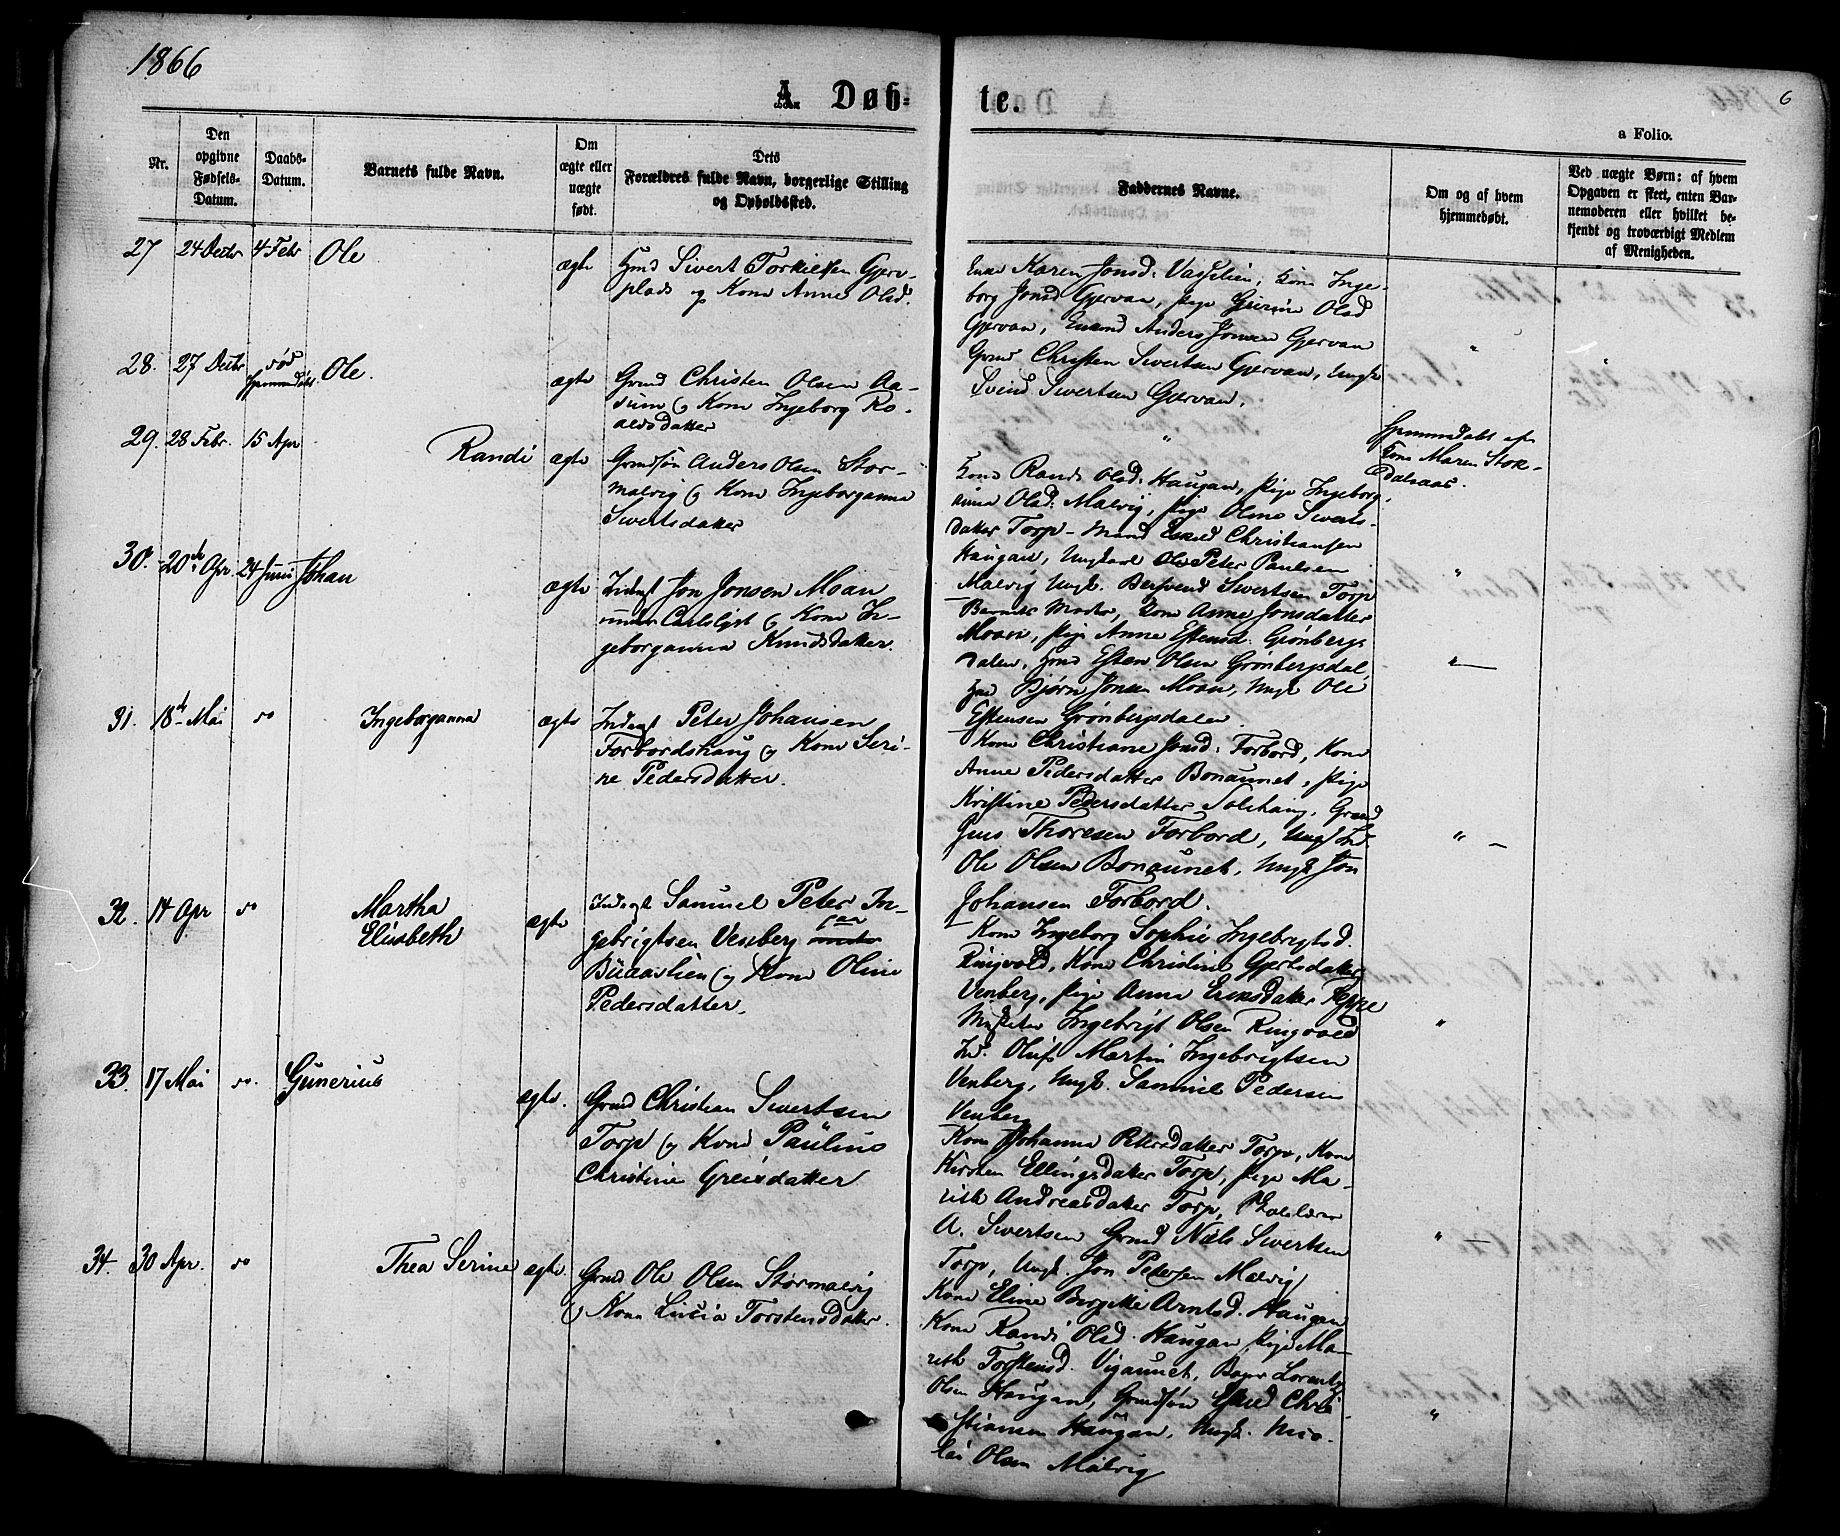 1866
6
A. Døb-
te.
a Folio.
Nr.
Den
opgivne
Fødsels-
Datum.
Daabs-
Datum.
Barnets fulde Navn.
Om
ægte eller
uægte
født.
Dets
Forældres fulde Navn, borgerlige Stilling
og Opholdssted.
Faddernes Navne.
Om og af hvem
hjemmedøbt.
Ved uægte Børn: af hvem
Opgaven er skeet, enten Bar-
nemoderen eller hvilket be-
kjendt og troværdigt Medlem
af Menigheden.
27 24 Decbr 4 Febr Ole ægte Hmd Sivert Torkielsen Gjerv-
plads og Kone Anne Olsd.
Enke Karen Jonsd: Vasselien, Kone Inge-
borg Jonsd Gjervan, Pige Olsd
Gjervan, Anders Jonsen Gjervan
Gmd Christen Sivertsen Gjervan, Ungk
Svend Sivertsen Gjervan.
28. 27 Decbr død Ole. ægte Gmd Christen Olsen Aa-
sum og Kone Ingeborg Ro-
aldsdatter
Hjemmedøbt af
Kone Maren Stok-
dalsaas.
29. 28 Febr. 15 Apr Randi ægte Gmdsøn Anders Olsen Stor-
malvig og Kone Ingeborganna
Sivertsdatter
Kone Randi Olsd: Haugan, Pige Ingeborg-
anna Olsd: Malvig, Pige Oline Siverts-
datter Torp - Mand Eskild Christiansen
Haugan, Ungkarl Ole Peter Paulsen
Malvig Ungk. Bersvend Sivertsen Torp
30. 20de Apr 24 Juni Johan ægte Inderst Jon Jonsen Moan
under Carlslyst og Kone In-
geborganna Knudsdatter.
Barnets Moder, Kone Anne Jonsdatter
Moan, Pige Anne Estensd. Grønbergs
dalen, Hmd Esten Olsen Grønbergsdal,
Bjørn Jonsen Moan, Ungk Ole
Estensen Grønbergsdalen.
31. 18de Mai do Ingeborganna ægte Inderst Peter Johansen
Forbordshaug og Kone Seri-
ne Pedersdatter.
Kone Christiane Jonsd: Forbord, Kone
Anne Pedersdatter Bonaunet, Pige
Kristine Pedersdatter Solehaug, Gmd
Jens Thoresen Forbord, Ungk
Ole Olsen Bonaunet, Ungk Jon
Johansen Forbord.
32. 14 Apr do Martha
Elisabeth ægte Inderst Samuel Peter In-
gebrigtsen Venberg paa
og Kone Oline
Pedersdatter.
Kone Ingeborg Sophie Ingebrigtsd.
Ringvold, Kone Christine Gjertsdatter
Venberg, Pige Anna Eriksdatter
Ingebrigt Olsen Ringvold
Ind. Oluf Martin Ingebrigtsen
Venberg, Ungk. Samuel Pedersen
Venberg
33. 17 Mai do. Gunerius ægte. Gmd Christian Sivertsen
Torp og Kone Pauline
Christine Greisdatter
Kone Johanna Petersdatter Torp, Kone
Kirsten Ellingsdatter Torp, Pige Ma-
rith Andreasdatter Torp,
A. Sivertsen Gmd Niels Sivertsen
Torp, Ungk. Jon Petersen Malvig
34. 30 Apr. do Thea Serine ægte Gmd Ole Olsen Stormalvig
og Kone Lucia Torstensdatter.
Kone Eline Bergitte Arntsd. Haugan
Kone Randi Olsd. Haugan, Pige Ma-
rith Torstensd. Vigaunet, Lorents
Olsen Haugan, Gmdsøn Eskild Chri-
stiansen Haugan, Ungk. Nico-
lai Olsen Malvig